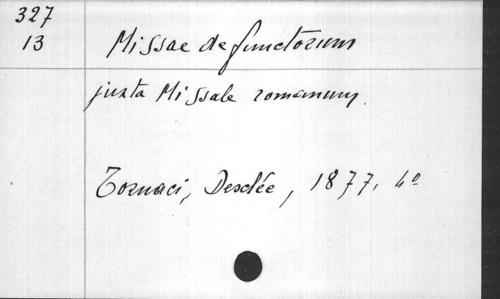 327
13
Missae defunctorum
juxta Missale romanum.
Tornaci, Desclée, 1877, 4°